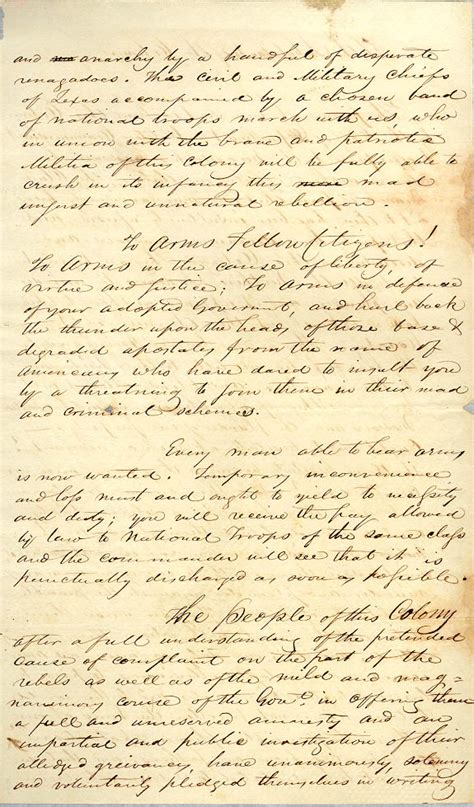 and anarchy by a handful of desperate
renagadoes. The civil and Military Chiefs
of Texas accompanied by a chosen band
of national troops march with us, who
in union with the brave and patriotic
Militia of this Colony will be fully able to
crush in its infancy this mad
unjust and unnatural rebellion.
To Arms Fellow Citizens!
To Arms in the cause of liberty of
virtue and justice; To Arms in defense
of your adopted Governmt, and hurl back
the thunder upon the heads of those base &
degraded apostates from the name of
Americans who have dared to insult you
by a threatning to join them in their mad
and criminal schemes.
Every man able to bear arms
is now wanted. Temporary inconvenience
and loss must and ought to yield to necessity
and duty; you will receive the pay allowed
by law to National Troops of the same class
and the commander will see that it is
punctually discharged as soon as possible.
The People of this Colony
after a full understanding of the pretended
cause of complaint on the part of the
rebels as well as of the mild and mag=
nanimous course of the Govt. in offering them
a full and unreserved amnesty and an
impartial and public investigation of their
alledged greivancy have unanimously, solemny
and voluntarily pledged themselves in writing